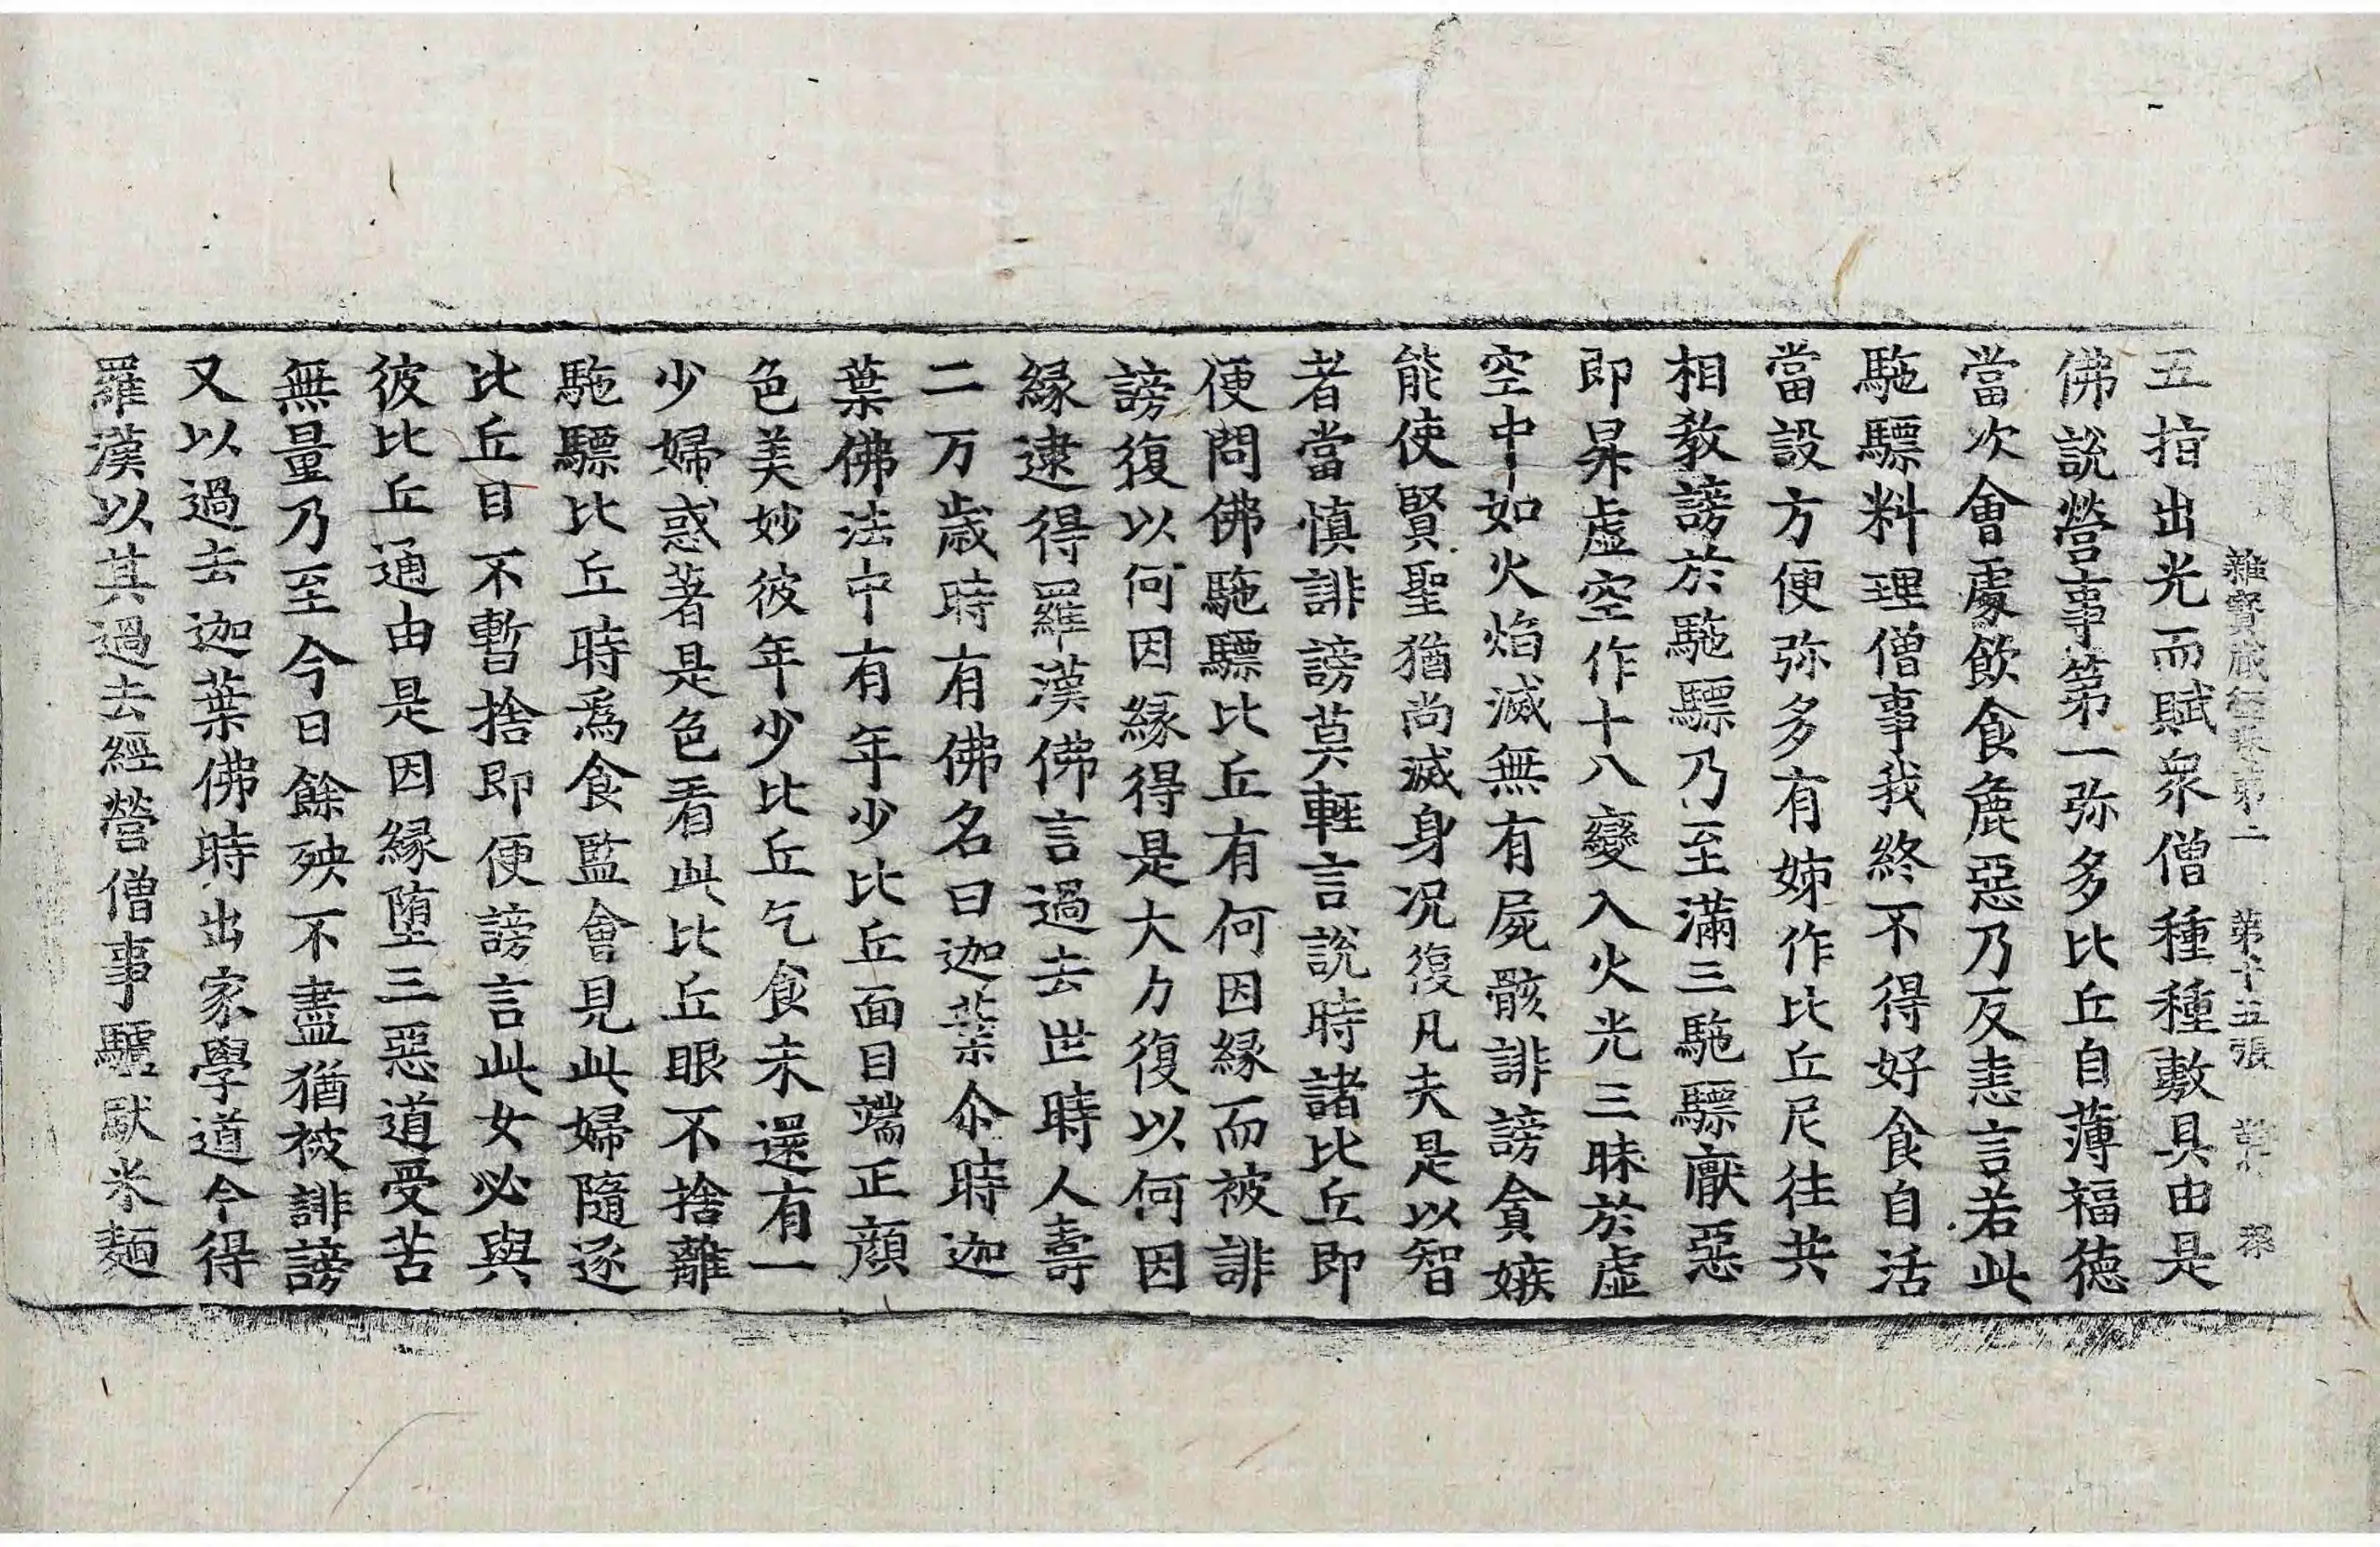 雜寶藏經卷第二　第十五張
五指出光而賦衆僧種種敷具由是
佛說營事第一弥多比丘自薄福德
當次會處飲食麁惡乃反恚言若此
駞驃料理僧事我終不得好食自活
當設方便弥多有姊作比丘尼往共
相教謗於駞驃乃至滿三駞驃厭惡
即昇虛空作十八變入火光三昧於虛
空中如火焰滅無有屍骸誹謗貪嫉
能使賢聖猶尚滅身况復凡夫是以智
者當慎誹謗莫輕言說時諸比丘即
便問佛駞驃比丘有何因緣而被誹
謗復以何因緣得是大力復以何因
緣逮得羅漢佛言過去世時人壽
二万歲時有佛名曰迦葉尒時迦
葉佛法中有年少比丘面目端正顏
色美妙彼年少比丘乞食未還有一
少婦惑著是色看此比丘眼不捨離
駞驃比丘時爲食監會見此婦隨逐
比丘目不暫捨即便謗言此女必與
彼比丘通由是因緣墮三惡道受苦
無量乃至今日餘殃不盡猶被誹謗
又以過去迦葉佛時出家學道今得
羅漢以其過去經營僧事驢馱米麵